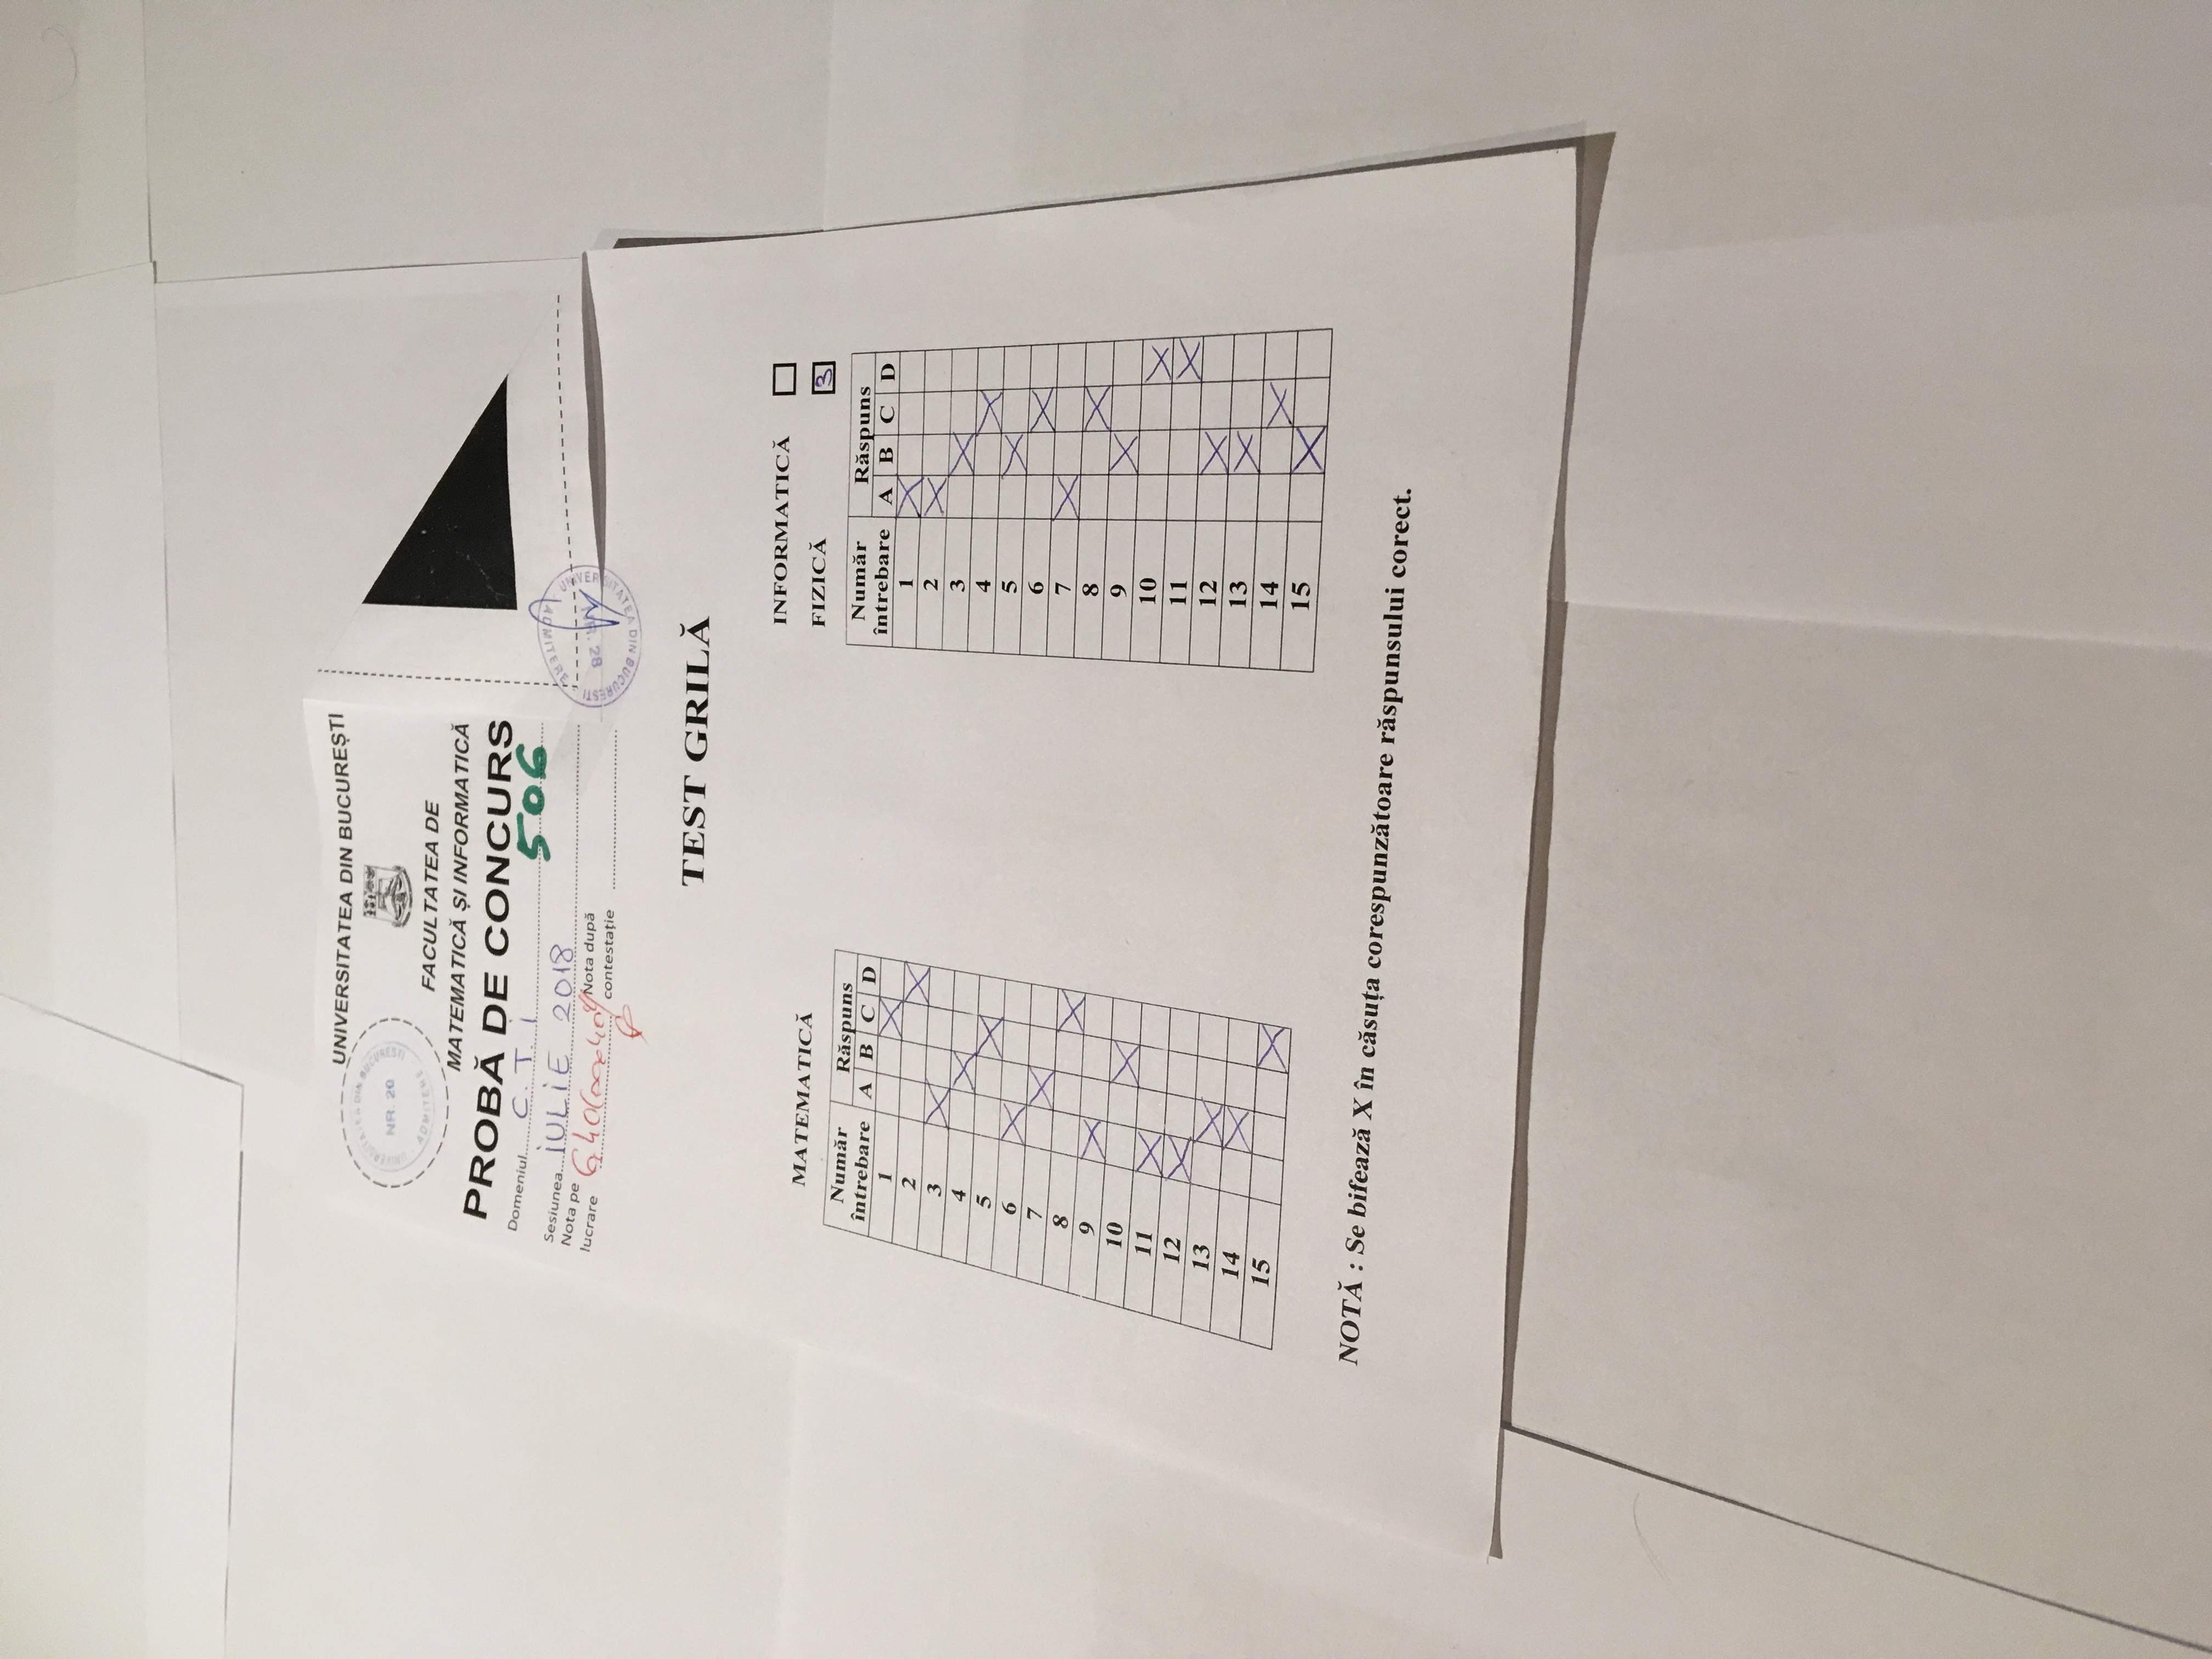 UNIVERSITATEA DIN BUCUREȘTI
UNIVERSITATEA DIN BUCUREȘTI
NR. 20
ADMITERE
FACULTATEA DE
MATEMATICĂ ȘI INFORMATICĂ
PROBĂ DE CONCURS
Domeniul C. T. I 506
Sesiunea IULIE 2018
Nota pe
lucrare
Nota după
contestație
UNIVERSITATEA DIN BUCUREȘTI
NR. 28
ADMITERE
TEST GRILĂ
MATEMATICĂ
Număr întrebare Răspuns
A B C D
1 X
2 X
3 X
4 X
5 X
6 X
7 X
8 X
9 X
10 X
11 X
12 X
13 X
14 X
15 X
INFORMATICĂ
FIZICĂ 3
Număr întrebare Răspuns
A B C D
1 X
2 X
3 X
4 X
5 X
6 X
7 X
8 X
9 X
10 X
11 X
12 X
13 X
14 X
15 X
NOTĂ : Se bifează X în căsuța corespunzătoare răspunsului corect.